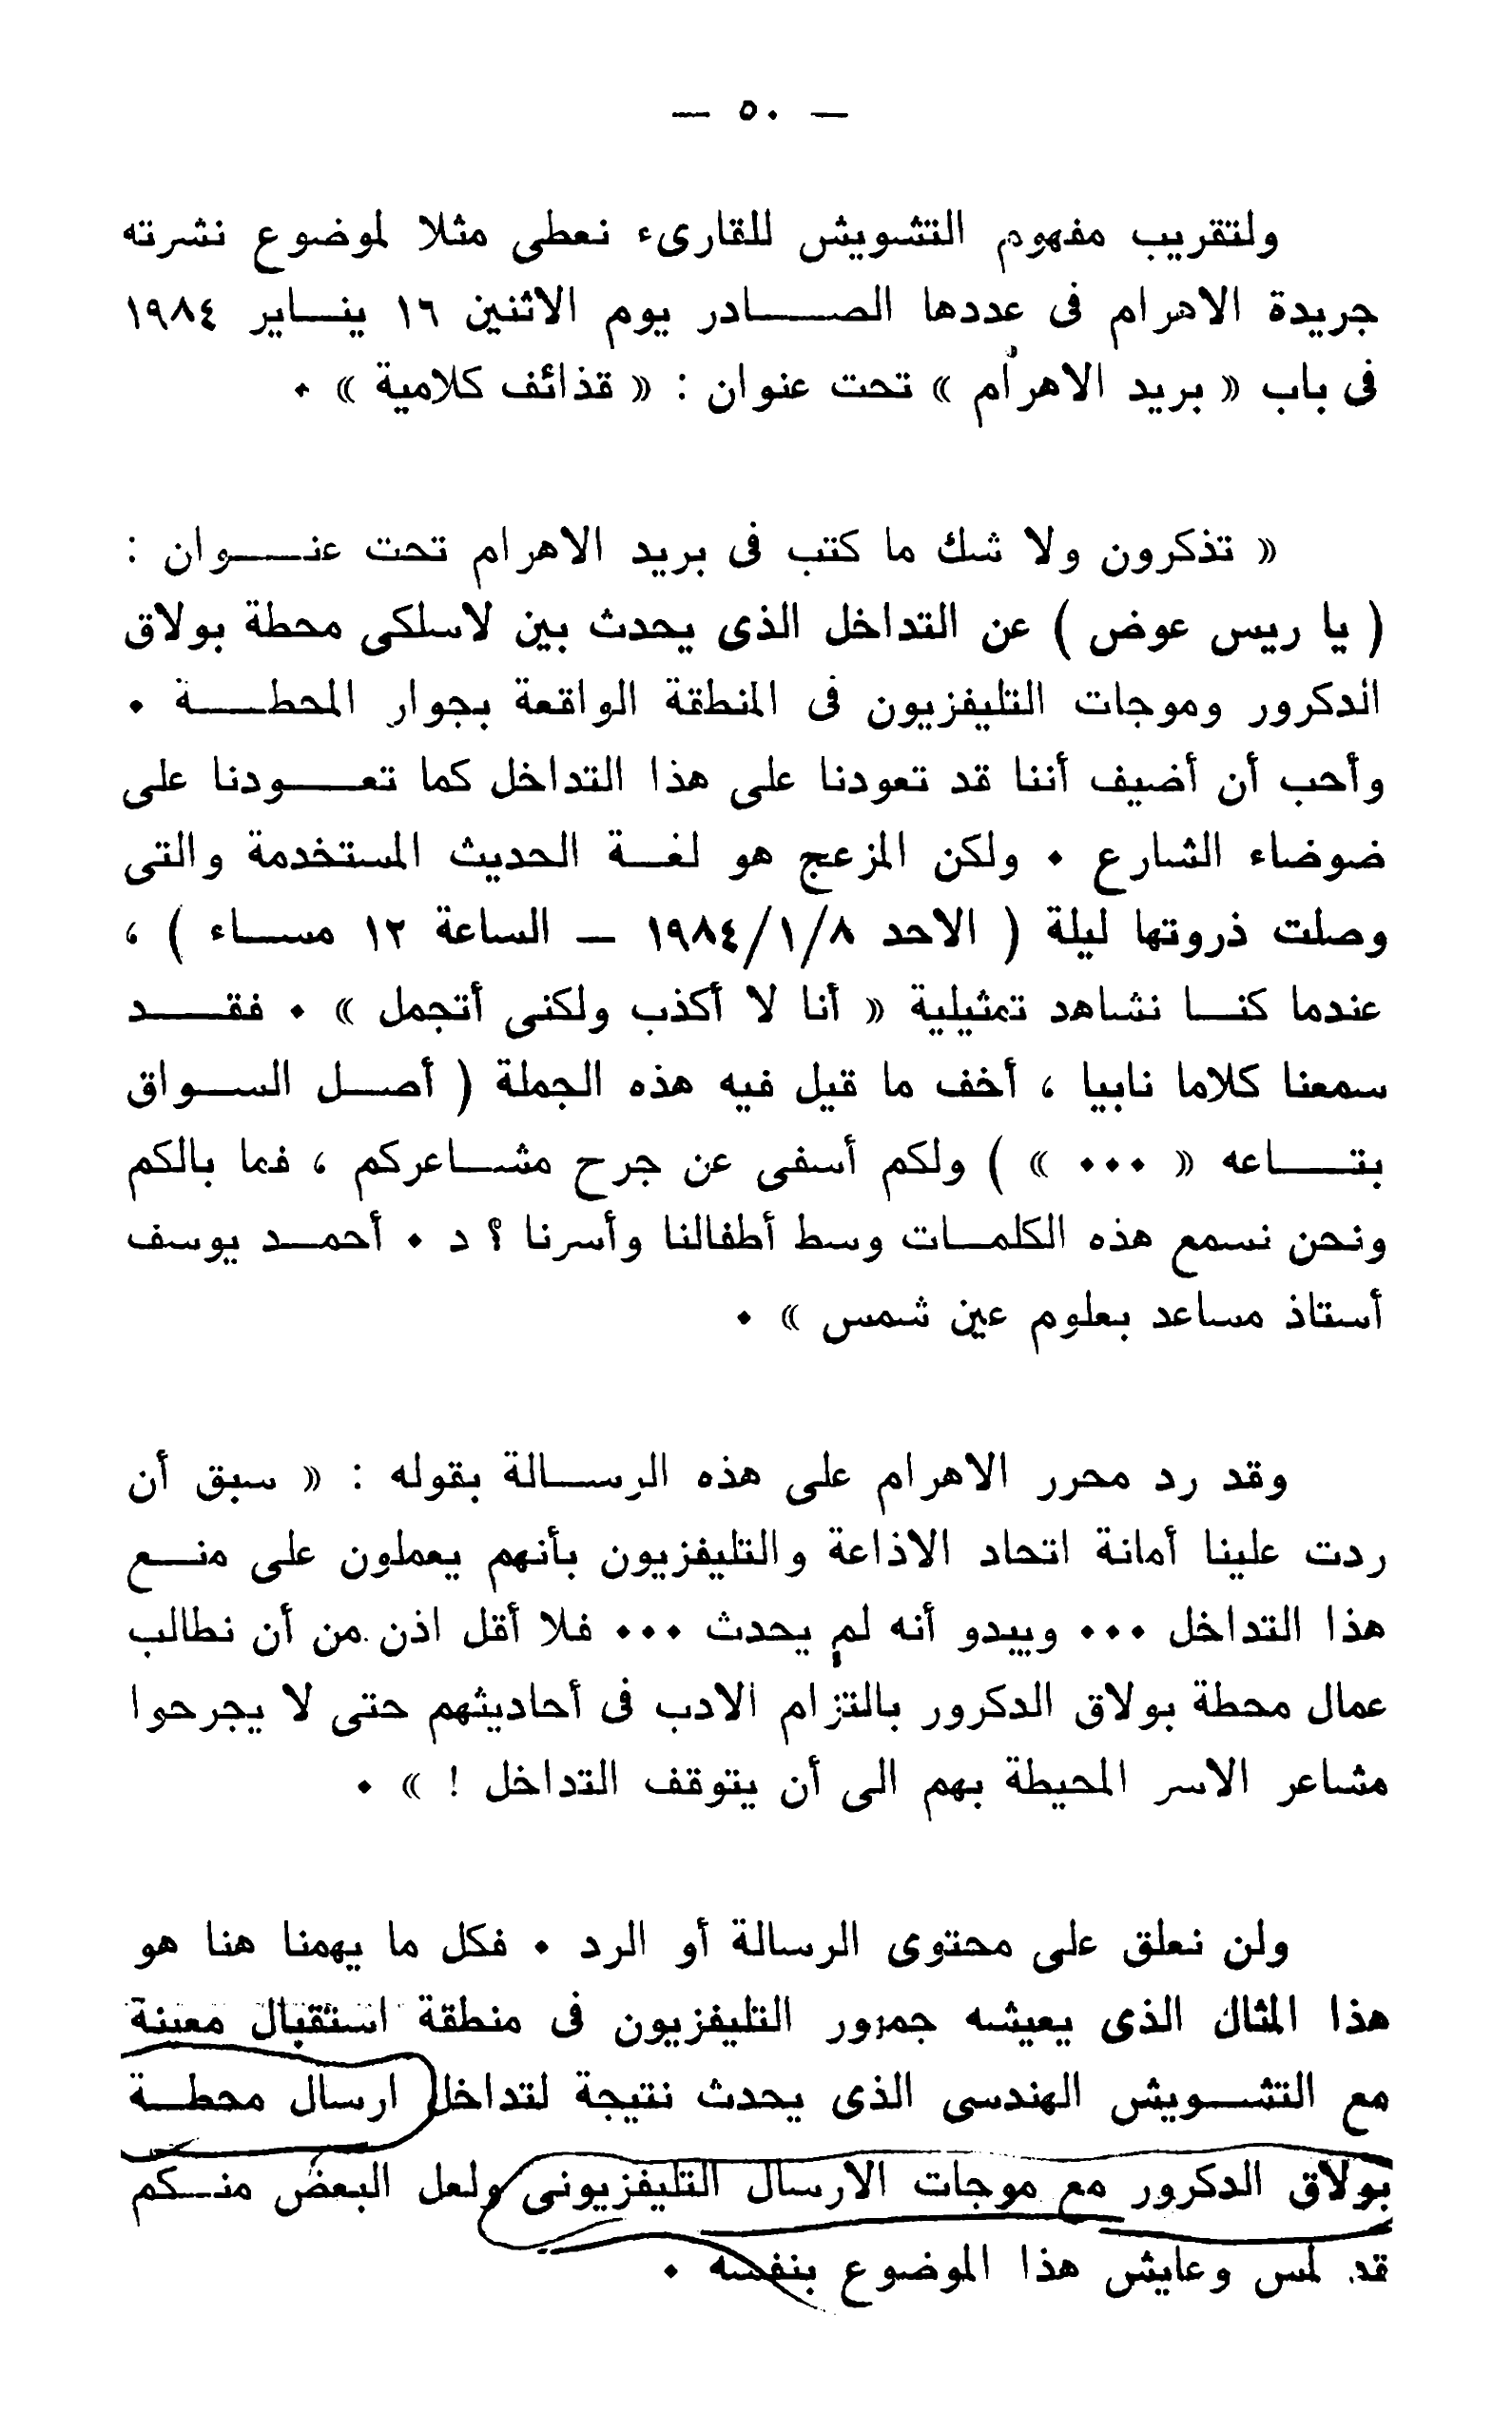 — ٥٠ —
ولتقريب مفهوم التشويش للقارىء نعطى مثلا لموضوع نشرته
جريدة الاهرام فى عددها الصادر يوم الاثنين ١٦ يناير ١٩٨٤
فى باب « بريد الاهرام » تحت عنوان : « قذائف كلامية » ٠
« تذكرون ولا شك ما كتب فى بريد الاهرام تحت عنوان :
( يا ريس عوض ) عن التداخل الذى يحدث بين لاسلكى محطة بولاق
الدكرور وموجات التليفزيون فى المنطقة الواقعة بجوار المحطة ٠
وأحب أن أضيف أننا قد تعودنا على هذا التداخل كما تعودنا على
ضوضاء الشارع ٠ ولكن المزعج هو لغة الحديث المستخدمة والتى
وصلت ذروتها ليلة ( الاحد ١٩٨٤/١/٨ – الساعة ١٢ مساء ) ،
عندما كنا نشاهد تمثيلية « أنا لا أكذب ولكنى أتجمل » ٠ فقد
سمعنا كلاما نابيا ، أخف ما قيل فيه هذه الجملة ( أصل السواق
بتاعه « ٠٠٠ » ) ولكم أسفى عن جرح مشاعركم ، فما بالكم
ونحن نسمع هذه الكلمات وسط أطفالنا وأسرنا ؟ د ٠ أحمد يوسف
أستاذ مساعد بعلوم عين شمس » ٠
وقد رد محرر الاهرام على هذه الرسالة بقوله : « سبق أن
ردت علينا أمانة اتحاد الاذاعة والتليفزيون بأنهم يعملون على منع
هذا التداخل ٠٠٠ ويبدو أنه لم يحدث ٠٠٠ فلا أقل اذن من أن نطالب
عمال محطة بولاق الدكرور بالتزام الادب فى أحاديثهم حتى لا يجرحوا
مشاعر الاسر المحيطة بهم الى أن يتوقف التداخل ! » ٠
ولن نعلق على محتوى الرسالة أو الرد ٠ فكل ما يهمنا هنا هو
هذا المثال الذى يعيشه جمهور التليفزيون فى منطقة استقبال معينة
مع التشويش الهندسى الذى يحدث نتيجة لتداخل ارسال محطة
بولاق الدكرور مع موجات الارسال التليفزيونى ولعل البعض منكم
قد لمس وعايش هذا الموضوع بنفسه ٠